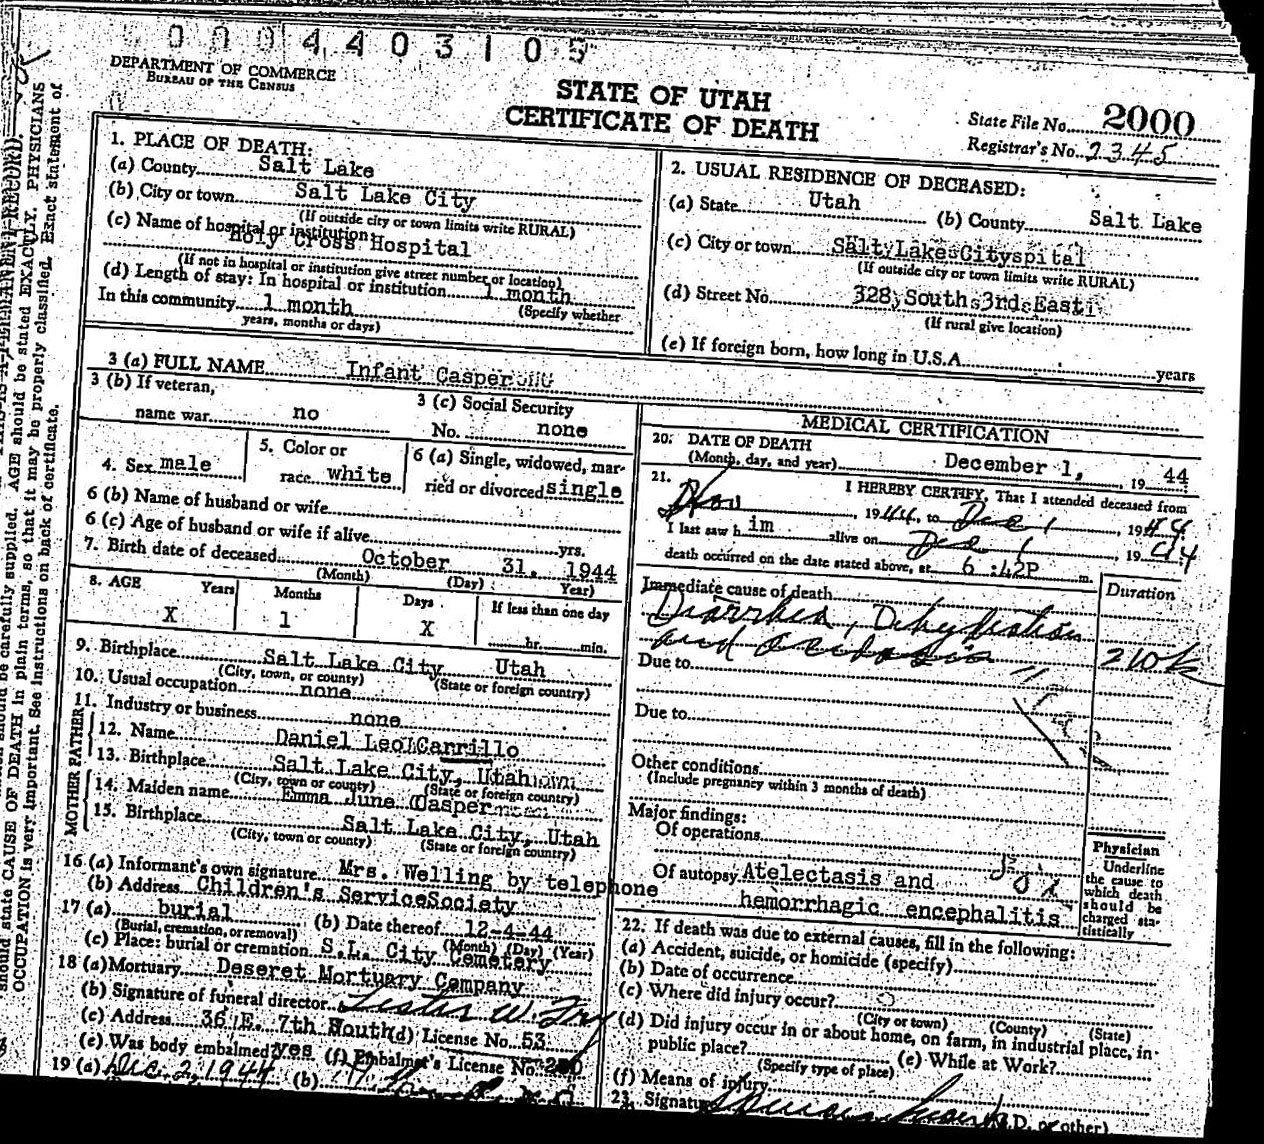 0004403105
DEPARTMENT OF COMMERCE
BUREAU OF THE CENSUS
STATE OF UTAH
CERTIFICATE OF DEATH
State File No. 2000
Registrar's No. 2345
1. PLACE OF DEATH:
(a) County Salt Lake
(b) City or town Salt Lake City
(If outside city or town limits write RURAL)
(c) Name of hospital or institution
Holy Cross Hospital
(If not in hospital or institution give street number or location)
(d) Length of stay: In hospital or institution 1 month
In this community 1 month (Specify whether
years, months or days)
2. USUAL RESIDENCE OF DECEASED:
(a) State Utah (b) County Salt Lake
(c) City or town Salt Lake City
(If outside city or town limits write RURAL)
(d) Street No. 328 South 3rd East
(If rural give location)
(e) If foreign born, how long in U.S.A. years
3 (a) FULL NAME Infant Casper
3 (b) If veteran,
name war no
3 (c) Social Security
No. none
4. Sex male
5. Color or
race white
6 (a) Single, widowed, mar-
ried or divorced single
6 (b) Name of husband or wife
6 (c) Age of husband or wife if alive yrs.
7. Birth date of deceased October 31. 1944
(Month) (Day) Year)
8. AGE Years Months Days If less than one day
X 1 X hr. min.
9. Birthplace Salt Lake City Utah
(City, town, or county) (State or foreign country)
10. Usual occupation none
11. Industry or business none
FATHER
12. Name Daniel Leo Carrillo
13. Birthplace Salt Lake City, Utah
(City, town or county) (State or foreign country)
MOTHER
14. Maiden name Emma June Casper
15. Birthplace Salt Lake City, Utah
(City, town or county) (State or foreign country)
16 (a) Informant's own signature Mrs. Welling by telephone
(b) Address Children's Service Society
17 (a) burial (b) Date thereof 12-4-44
(Burial, cremation, or removal) (Month) (Day) (Year)
(c) Place: burial or cremation S.L. City Cemetery
18 (a) Mortuary Deseret Mortuary Company
(b) Signature of funeral director Lester W. Fry
(c) Address 36 E. 7th South (d) License No. 53
(e) Was body embalmed yes (f) Embalmer's License No.
19 (a) Dec. 2, 1944 (b)
MEDICAL CERTIFICATION
20. DATE OF DEATH
(Month, day, and year) December 1, 19 44
21. I HEREBY CERTIFY, That I attended deceased from
Nov , 19 44, to Dec 1 19 44
I last saw h im alive on Dec 1 19 44
death occurred on the date stated above, at 6:42P m.
Immediate cause of death Duration
Diarrhea, Dehydration
and acidosis
Due to
Due to
Other conditions
(Include pregnancy within 3 months of death)
Major findings:
Of operations
Of autopsy Atelectasis and
hemorrhagic encephalitis
Physician
Underline
the cause to
which death
should be
charged sta-
tistically
22. If death was due to external causes, fill in the following:
(a) Accident, suicide, or homicide (specify)
(b) Date of occurrence
(c) Where did injury occur?
(City or town) (County) (State)
(d) Did injury occur in or about home, on farm, in industrial place, in
public place? (e) While at Work?
(Specify type of place)
(f) Means of injury
23. Signature M.D. or other)
should be carefully supplied. AGE should be stated EXACTLY. PHYSICIANS
should state CAUSE OF DEATH in plain terms, so that it may be properly classified. Exact statement of
OCCUPATION is very important. See instructions on back of certificate.